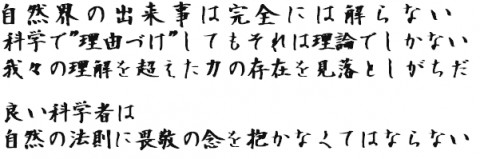 自然界の出来事は完全には解らない
科学で"理由づけ"してもそれは理論でしかない
我々の理解を超えた力の存在を見落としがちだ
良い科学者は
自然の法則に畏敬の念を抱かなくてはならない